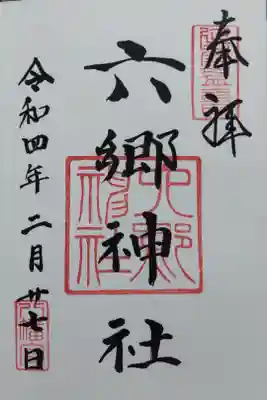 奉拝
六郷神社
六郷神社
令和四年二月廿七日